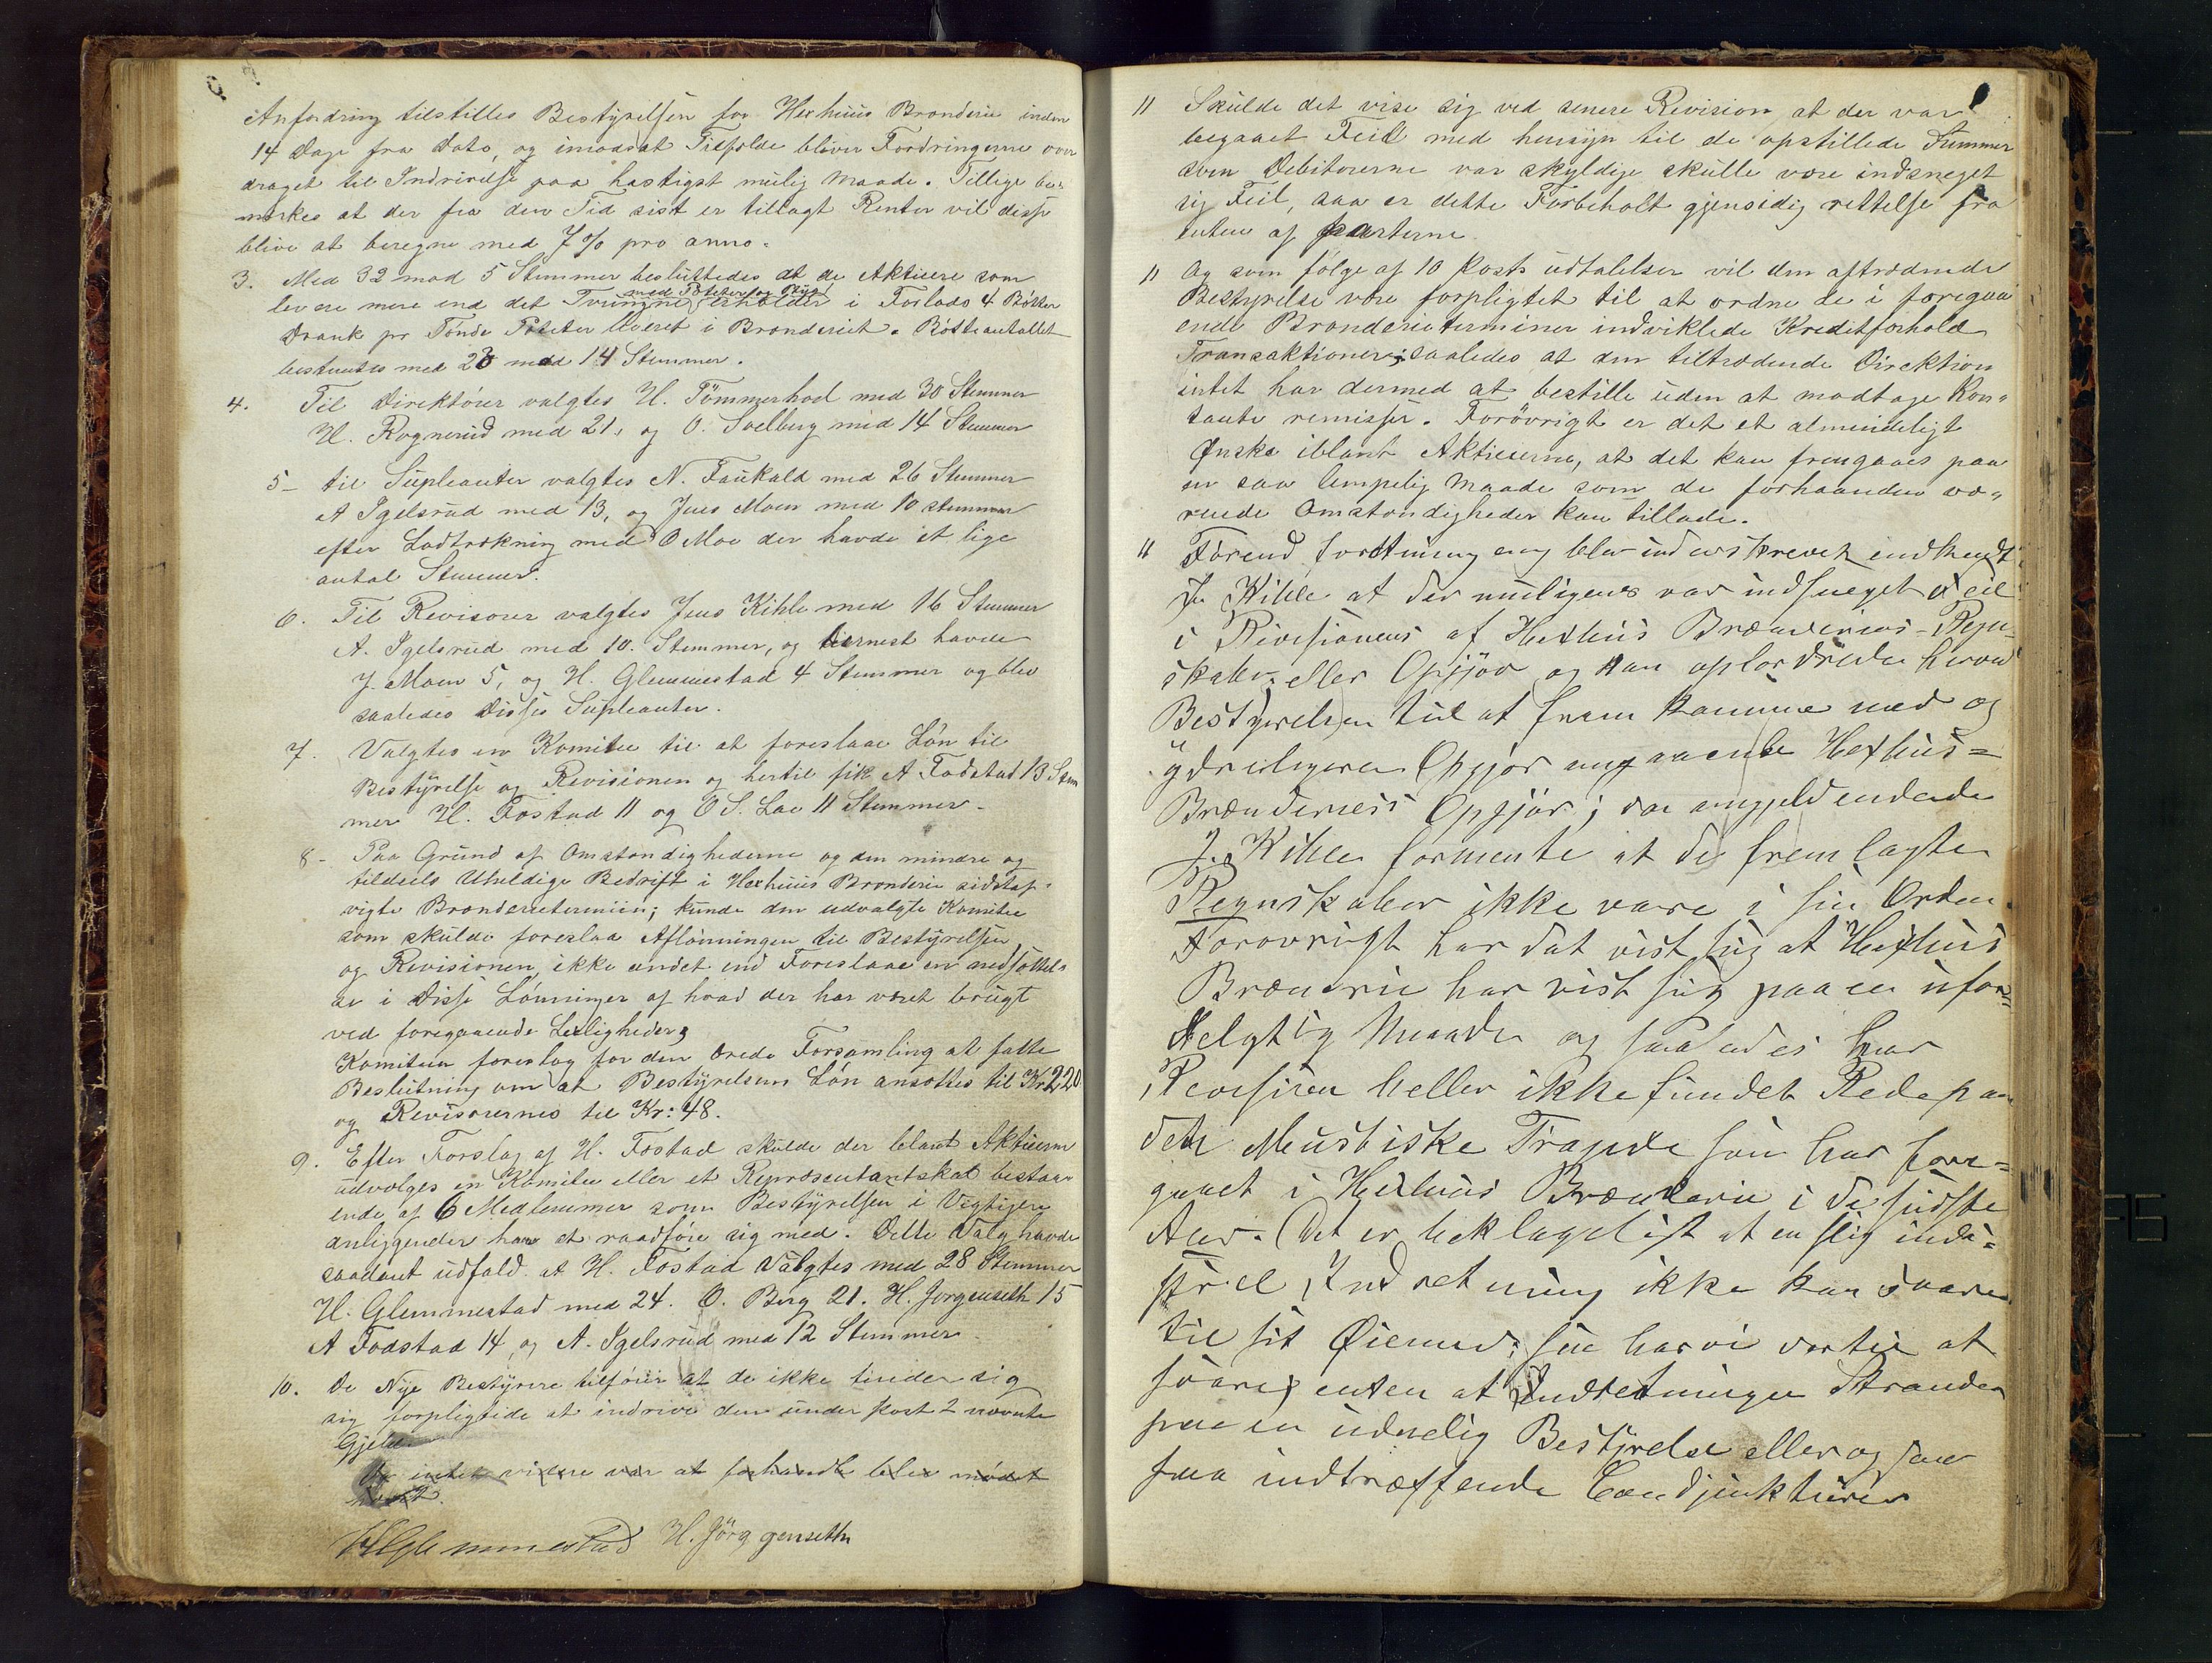 Anfordring tilstilles Bestyrelsen for Hexhuus Brænderie inden
14 Dage fra Dato, og imodsat Tilfælde bliver Fordringerne over
draget til Indrivelse paa hastigst mulig Maade. Tillige be-
mærkes at der fra den Tid sist er tillagt Renter vil disse
blive at beregne med 7 % pro anno.
3. Med 32 mod 5 Stemmer besluttedes at de Aktieere som
med Poteter og Bÿg
levere mere end det Tvungne erholder i Forlods 4 Bøtter
Drank pr Tønde Poteter leveret i Brænderiet. Bøtteantallet
bestemtes med 23 mod 14 Stemmer.
4. Til Direktører valgtes H. Tömmerhod med 30 Stemmer
H. Rognerud med 21, og O. Soelberg med 14 Stemmer
5- til Supleanter valgtes N. Faukald med 26 Stemmer
A Igelsrud med 13, og Jens Moen med 10 stemmer
efter Lodtrækning med O Moe der havde et lige
antal Stemmer.
6. Til Revisorer valgtes Jens Kihle med 16 Stemmer
A. Igelsrud med 10. Stemmer, og dernest havde
J. Moen 5, og H. Glemmestad 4 Stemmer og blev
saaledes Disse Supleanter.
7. Valgtes en Komitee til at foreslaae Løn til
Bestyrelse og Revisionen og hertil fik A Fodstad 13 Stem
mer H. Fostad 11 og O S. Lae 11 Stemmer.
8- Paa Grund af Omstændighederne og den mindre og
tildeels Uheldige Bedrift i Hexhuus Brænderie sidstaf-
vigte Brænderietermiin; kunde den udvalgte Komitee
som skulde foreslaa Aflønningen til Bestyrelsen
og Revisionen, ikke andet end Foreslaae en nedsættel-
se i Disse Lønninger af hvad der har været brugt
ved foregaaende Leiligheder;
Komiteen foreslog for den ærede Forsamling at fatte
Beslutning om at Bestyrelsens Løn ansættes til Kr 220
og Revisorernes til Kr: 48.
9. Efter Forslag af H. Fostad skulde der blant Aktieerne
udvælges en Komitee eller et Repræsentantskab bestaa-
ende af 6 Medlemmer som Bestyrelsen i Vigtigere
anliggender har at raadføre sig med. Dette Valg havde
saadant udfald at H. Fostad Valgtes med 28 Stemmer
H. Glemmestad med 24. O. Berg 21. H. Jørgenseth 15
A Fodstad 14, og A. Igelsrud med 12 Stemmer
10. De Nye Bestyrere tilføier at de ikke finder sig
sig forpligtede at indrive den under Post 2 nævnte
Gjeld
Da intet videre var at forhandle blev mødet
hævet.
HGlemmestad H. Jörgenseth
11 Skulde det vise sig ved senere Revision at der var
begaaet Feil med hensyn til de opstillede Summer
som Debitorerne var skyldige skulle være indsneget
sig Feil, saa er dette Forbeholt gjensidig rettelse fra
enten af parterne
11 Og som følge af 10 Posts udtalelser vil den aftrædende
Bestyrelse være forpligtet til at ordne de i foregaa
ende Brænderieterminer indviklede Kreditforhold
Transaktioner; saaledes at den tiltrædende Direktion
intet har dermed at bestille uden at modtage Kon-
tante remisser. Forövrigt er det et almindeligt
Ønske iblant Aktieerne, at det kan fremgaaes paa
en saa lempelig Maade som de forhaanden væ-
rende Omstændigheder kan tillade.
11 Förend
J. Kihle at der muligens var indsneget Feil
i Revisionens af Hexhus Brænderies-Regn-
skaber eller Opgjör og han opfordrede hvad
Bestyrelsen til at frem komme med og
ÿderligere Opgjör angaaende Hexhus-
Brænderies Opgjör; da
J. Kihle formente at de fremlagte
Regnskaber ikke være i sin Orden
Forøvrigt har dat vist sig at Hexhus
Brænerie har vist sig paa en ufor-
delagtig Maade og saaledes har
Revisiren heller ikke fundet Rede paa
den Mustiske Trapde som har fore-
gaaet i Hexhus Brænderie i de sidste
Aar. Det er beklageligt at en slig indu-
striel Indretning ikke kan svare
til sit Øiemed; saa har vi dertil at
svare; enten at Indretningen Strander
paa en uduelig Bestyrelse eller og saa
paa indtræffende Condjunkturer